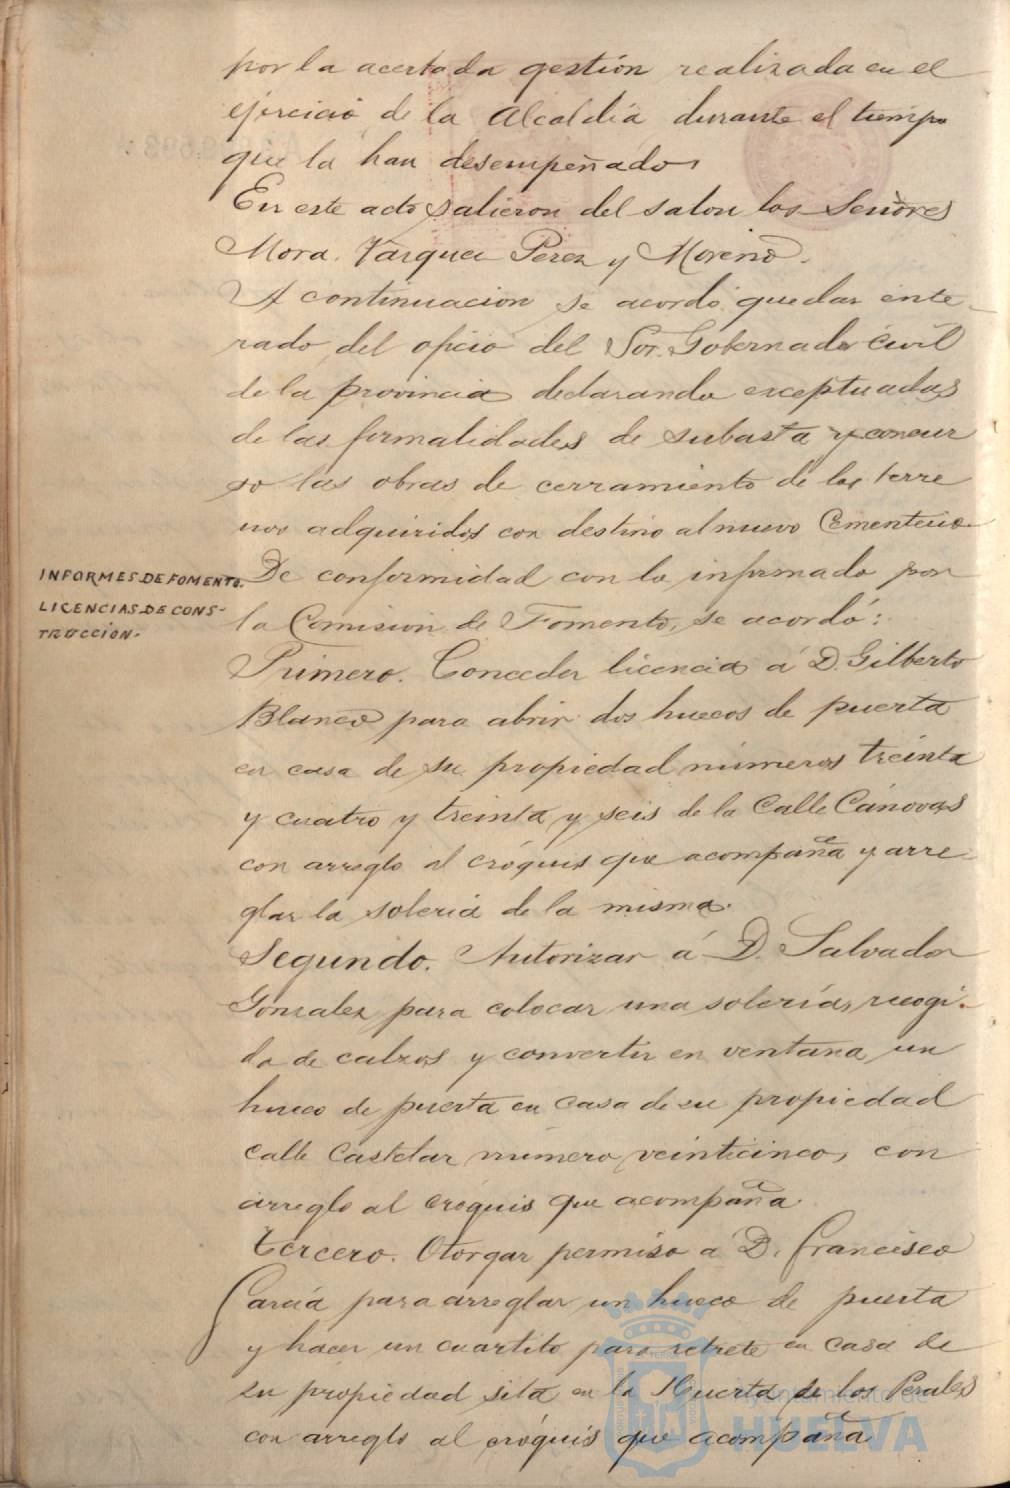 por la acertada gestión realizada en el
ejercicio de la Alcaldía durante el tiempo
que la han desempeñado.
En este acto salieron del salon los Señores
Mora, Vazquez Perez y Moreno.
A continuacion se acordó quedar ente-
rado del oficio del Sor. Gobernador civil
de la provincia declarando exceptuadas
de las formalidades de subasta y concur
so las obras de cerramiento de los terre
nos adquiridos con destino al nuevo Cementerio
INFORMES DE FOMENTO.
LICENCIAS DE CONS-
TRUCCION.
De conformidad con lo informado por
la Comision de Fomento, se acordó:
Primero. Conceder licencia á D. Gilberto
Blanco para abrir dos huecos de puerta
en casa de su propiedad números treinta
y cuatro y treinta y seis de la Calle Cánovas
con arreglo al cróquis que acompaña y arre-
glar la solería de la misma.
Segundo. Autorizar á D. Salvador
Gonzalez para colocar una solería, recogi-
da de calzos y convertir en ventana un
hueco de puerta en casa de su propiedad
calle Castelar número veinticinco, con
arreglo al cróquis que acompaña.
Tercero. Otorgar permiso á D. Francisco
García para arreglar un hueco de puerta
y hacer un cuartito para retrete en casa de
su propiedad sita en la Huerta de los Perales
con arreglo al cróquis que acompaña
Ayuntamiento de
HUELVA